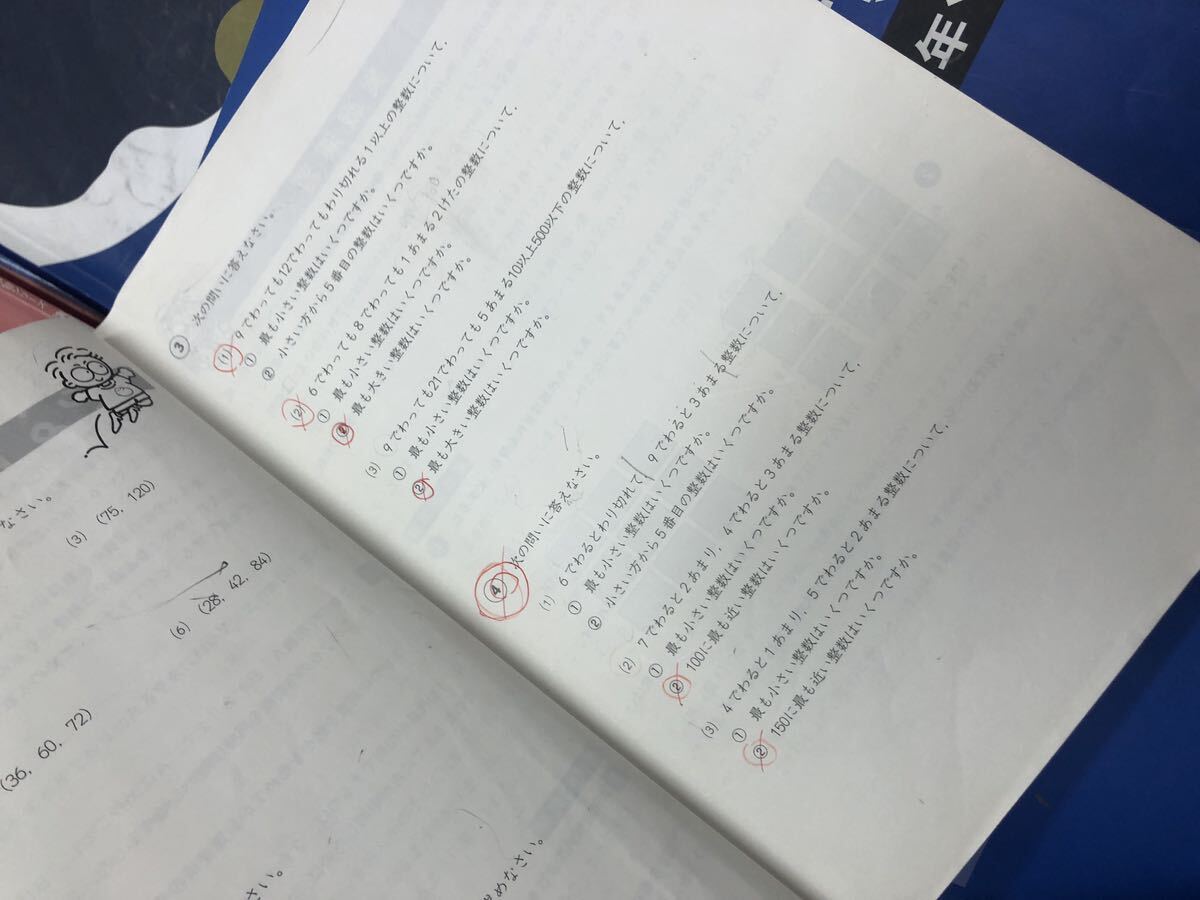 年
なさい。
(3) (75, 120)
(6) (28, 42, 84)
(36, 60, 72)
さい。
めなさい。
③ 次の問いに答えなさい。
(1) 9でわっても12でわってもわり切れる1以上の整数について,
① 最も小さい整数はいくつですか。
② 小さい方から5番目の整数はいくつですか。
(2) 6でわっても8でわっても1あまる2けたの整数について,
① 最も小さい整数はいくつですか。
② 最も大きい整数はいくつですか。
(3) 9でわっても21でわっても5あまる10以上500以下の整数について,
① 最も小さい整数はいくつですか。
② 最も大さい整数はいくつですか。
④ 次の問いに答えなさい。
(1) 6でわるとわり切れて, 9でわると3あまる整数について,
① 最も小さい整数はいくつですか。
② 小さい方から5番目の整数はいくつですか。
(2) 7でわると2あまり, 4でわると3あまる整数について,
① 最も小さい整数はいくつですか。
② 100に最も近い整数はいくつですか。
(3) 4でわると1あまり, 5でわると2あまる整数について,
① 最も小さい整数はいくつですか。
② 150に最も近い整数はいくつですか。